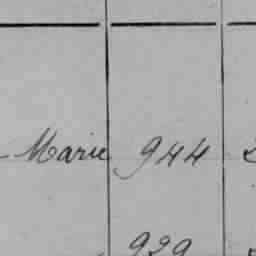 Marie 944
929